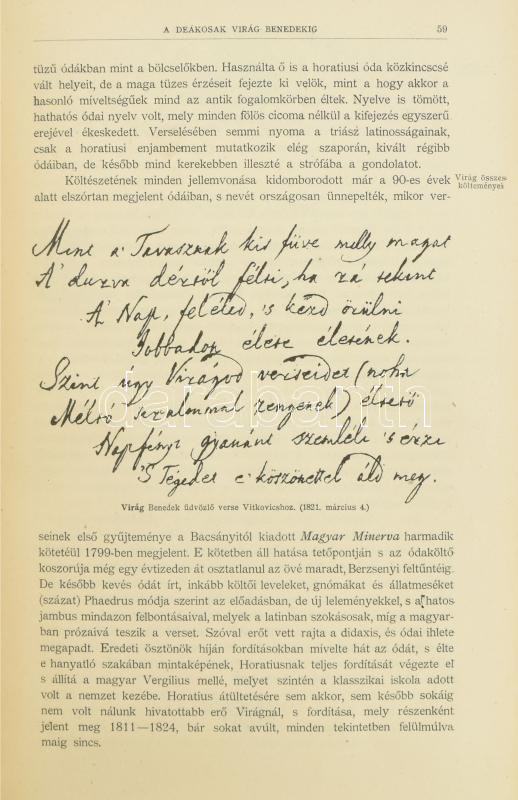 A DEÁKOSAK VIRÁG BENEDEKIG 59
tüzű ódákban mint a bölcselőkben. Használta ő is a horatiusi óda közkincscsé
vált helyeit, de a maga tüzes érzéseit fejezte ki velök, mint a hogy akkor a
hasonló míveltségűek mind az antik fogalomkörben éltek. Nyelve is tömött,
hathatós ódai nyelv volt, mely minden fölös cicoma nélkül a kifejezés egyszerű
erejével ékeskedett. Verselésében semmi nyoma a triász latinosságainak,
csak a horatiusi enjambement mutatkozik elég szaporán, kivált régibb
ódáiban, de később mind kerekebben illeszté a strófába a gondolatot.
Költészetének minden jellemvonása kidomborodott már a 90-es évek
alatt elszórtan megjelent ódáiban, s nevét országosan ünnepelték, mikor ver-
Virág összes
költeményei
Mint a' Tavasznak kis füve melly magát
A' durva dértöl félti, ha rá tekint
A' Nap, feléled, 's kezd örülni
Jobbadon élete életének.
Szint úgy Virágod verseidet (noha
Méltó
Napfény gyanánt szemléli 's érzi
'S Tégedet e' köszönettel áld meg.
darabanth
Virág Benedek üdvözlő verse Vitkovicshoz. (1821. március 4.)
seinek első gyűjteménye a Bacsányitól kiadott Magyar Minerva harmadik
kötetéül 1799-ben megjelent. E kötetben áll hatása tetőpontján s az ódaköltő
koszorúja még egy évtizeden át osztatlanul az övé maradt, Berzsenyi feltűntéig.
De később kevés ódát írt, inkább költői leveleket, gnómákat és állatmeséket
(százat) Phaedrus módja szerint az előadásban, de új leleményekkel, s a hatos
jambus mindazon felbontásaival, melyek a latinban szokásosak, míg a magyar-
ban prózaivá teszik a verset. Szóval erőt vett rajta a didaxis, és ódai ihlete
megapadt. Eredeti ösztönök híján fordításokban mívelte hát az ódát, s élte
e hanyatló szakában mintaképének, Horatiusnak teljes fordítását végezte el
s állítá a magyar Vergilius mellé, melyet szintén a klasszikai iskola adott
volt a nemzet kezébe. Horatius átültetésére sem akkor, sem később sokáig
nem volt nálunk hivatottabb erő Virágnál, s fordítása, mely részenként
jelent meg 1811—1824, bár sokat avúlt, minden tekintetben felülmúlva
maig sincs.